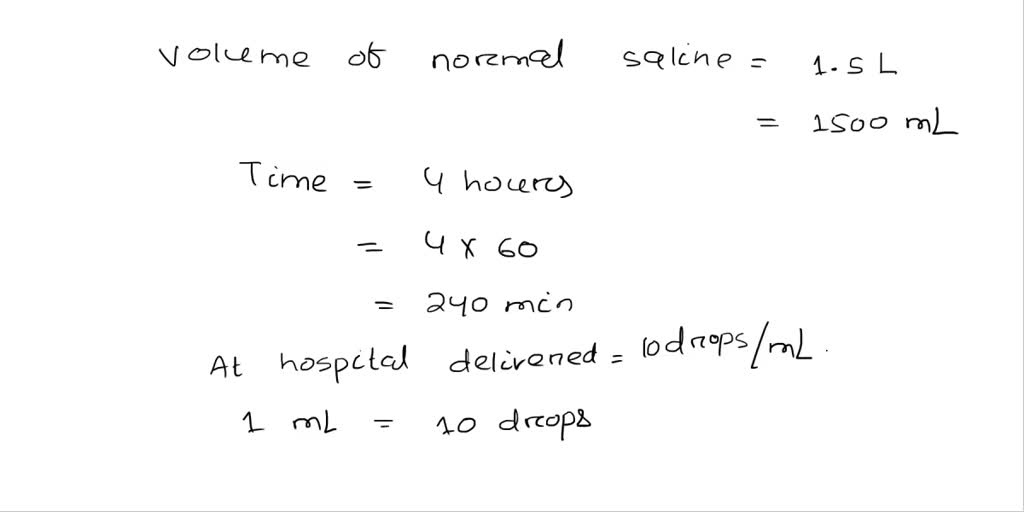 volume of normal saline = 1.5 L
= 1500 mL
Time = 4 hours
= 4 x 60
= 240 min
At hospital delivered = 10 drops/mL.
1 mL = 10 drops